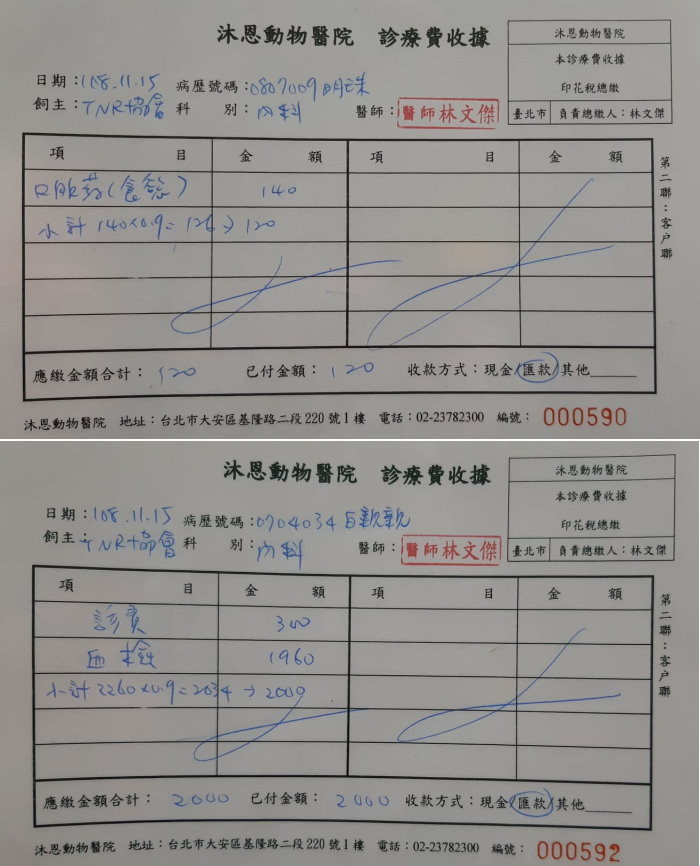 沐恩動物醫院 診療費收據
沐恩動物醫院
本診療費收據
印花稅總繳
臺北市 負責總繳人：林文傑
日期：108.11.15 病歷號碼：0807009 明珠
飼主：TNR協會 科 別：內科 醫師：醫師林文傑
項 目 金 額 項 目 金 額
口服藥(食慾) 140
小計 140×0.9=126→120
第二聯：客戶聯
應繳金額合計：120 已付金額：120 收款方式：現金/匯款/其他
沐恩動物醫院 地址：台北市大安區基隆路二段220號1樓 電話：02-23782300 編號：000590
沐恩動物醫院 診療費收據
沐恩動物醫院
本診療費收據
印花稅總繳
臺北市 負責總繳人：林文傑
日期：108.11.15 病歷號碼：0704034 親親
飼主：TNR協會 科 別：內科 醫師：醫師林文傑
項 目 金 額 項 目 金 額
診費 300
血檢 1960
小計 2260×0.9=2034→2000
第二聯：客戶聯
應繳金額合計：2000 已付金額：2000 收款方式：現金/匯款/其他
沐恩動物醫院 地址：台北市大安區基隆路二段220號1樓 電話：02-23782300 編號：000592